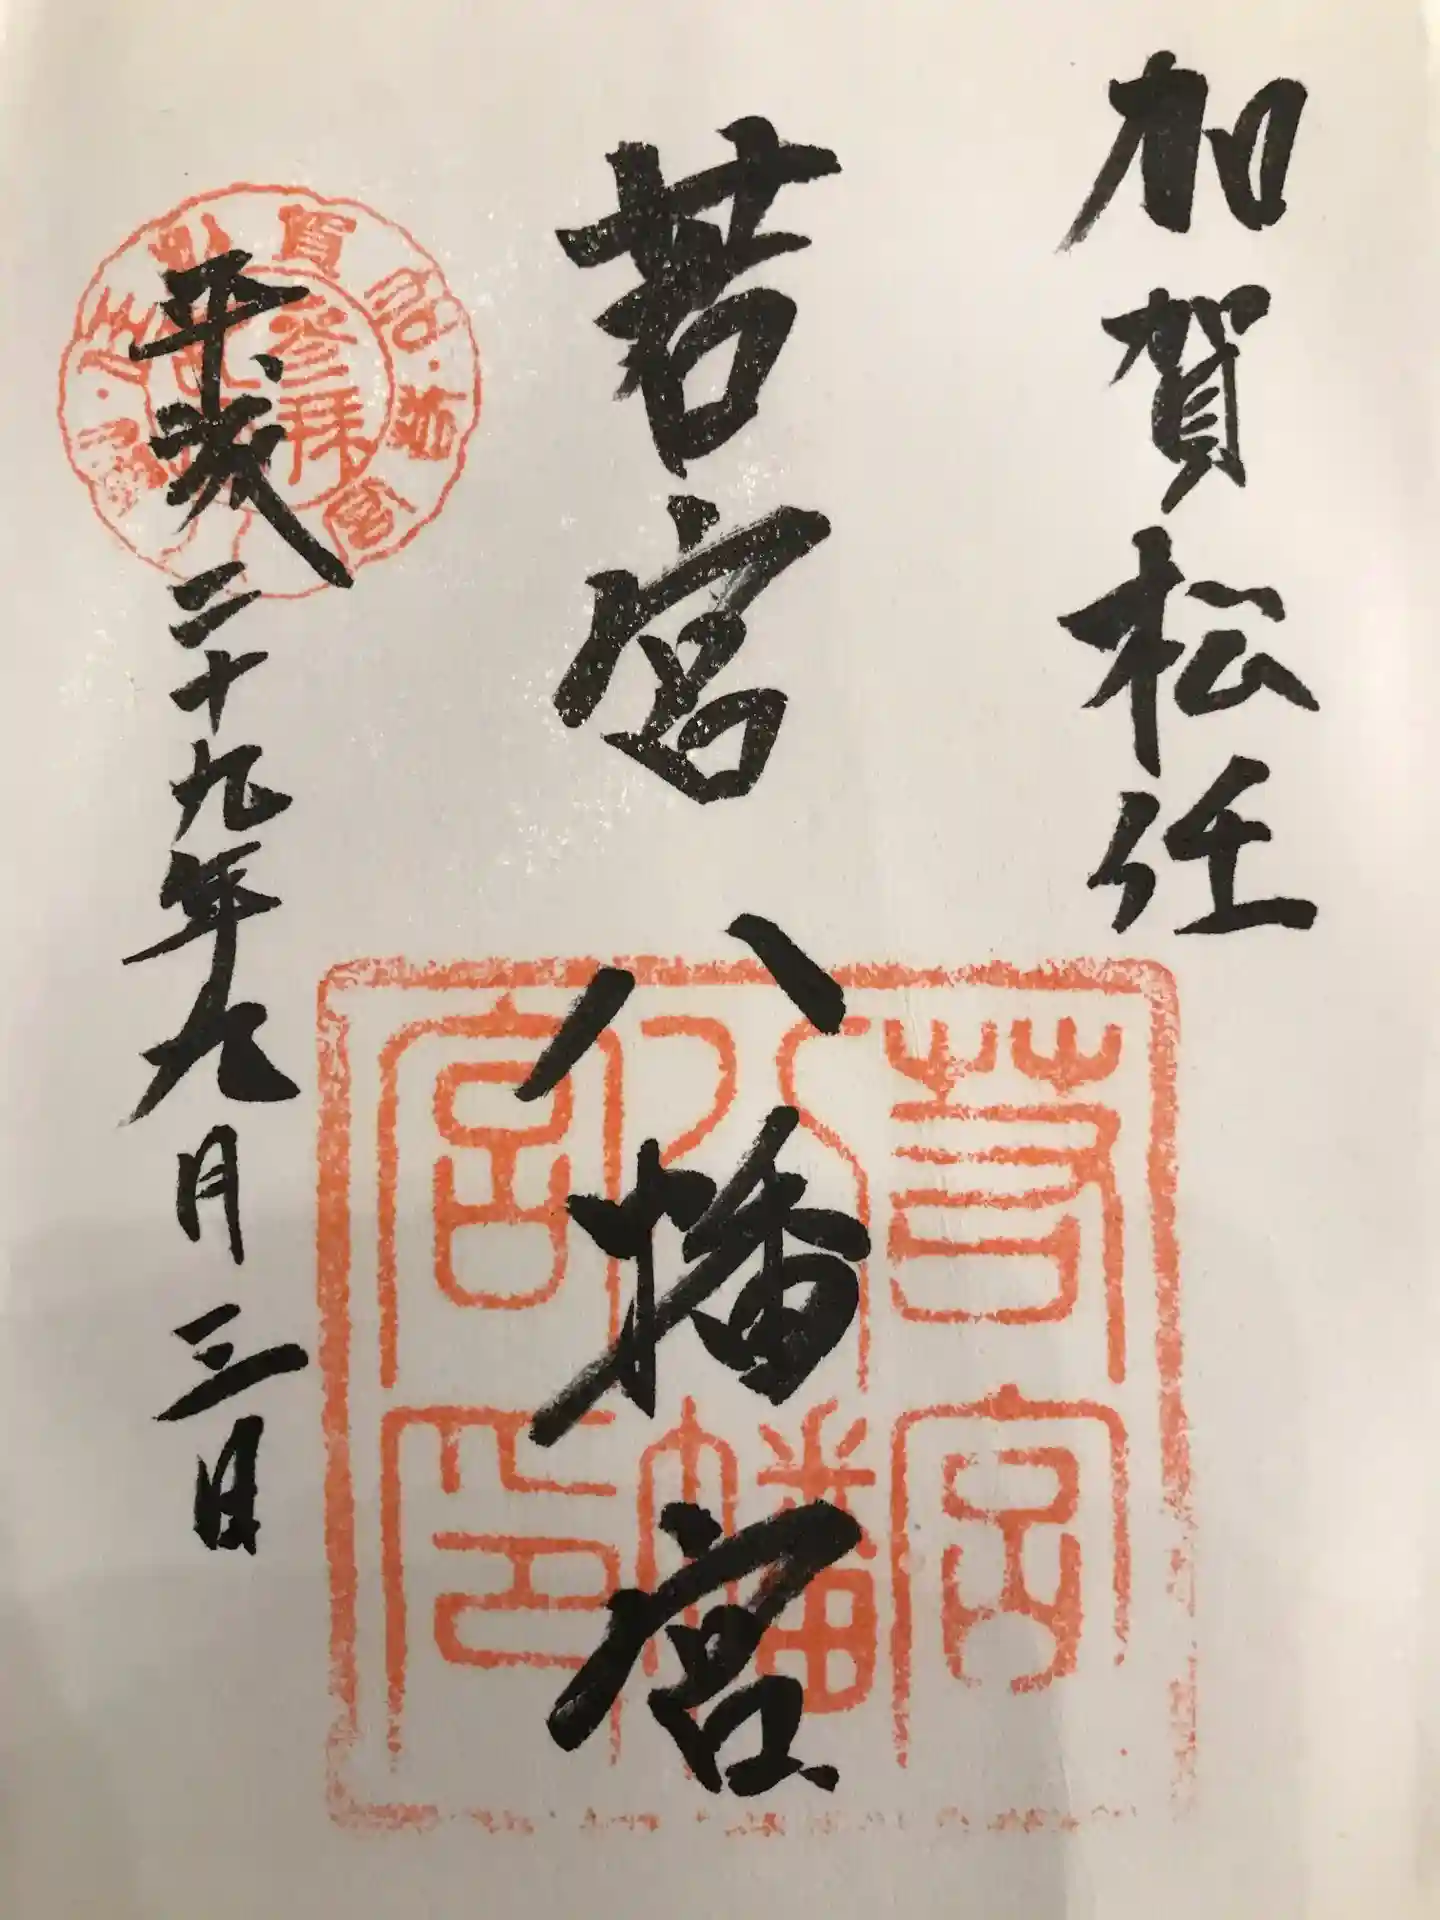 加賀松任
若宮八幡宮
平成二十九年九月三日
若宮
八幡
宮印
参拝